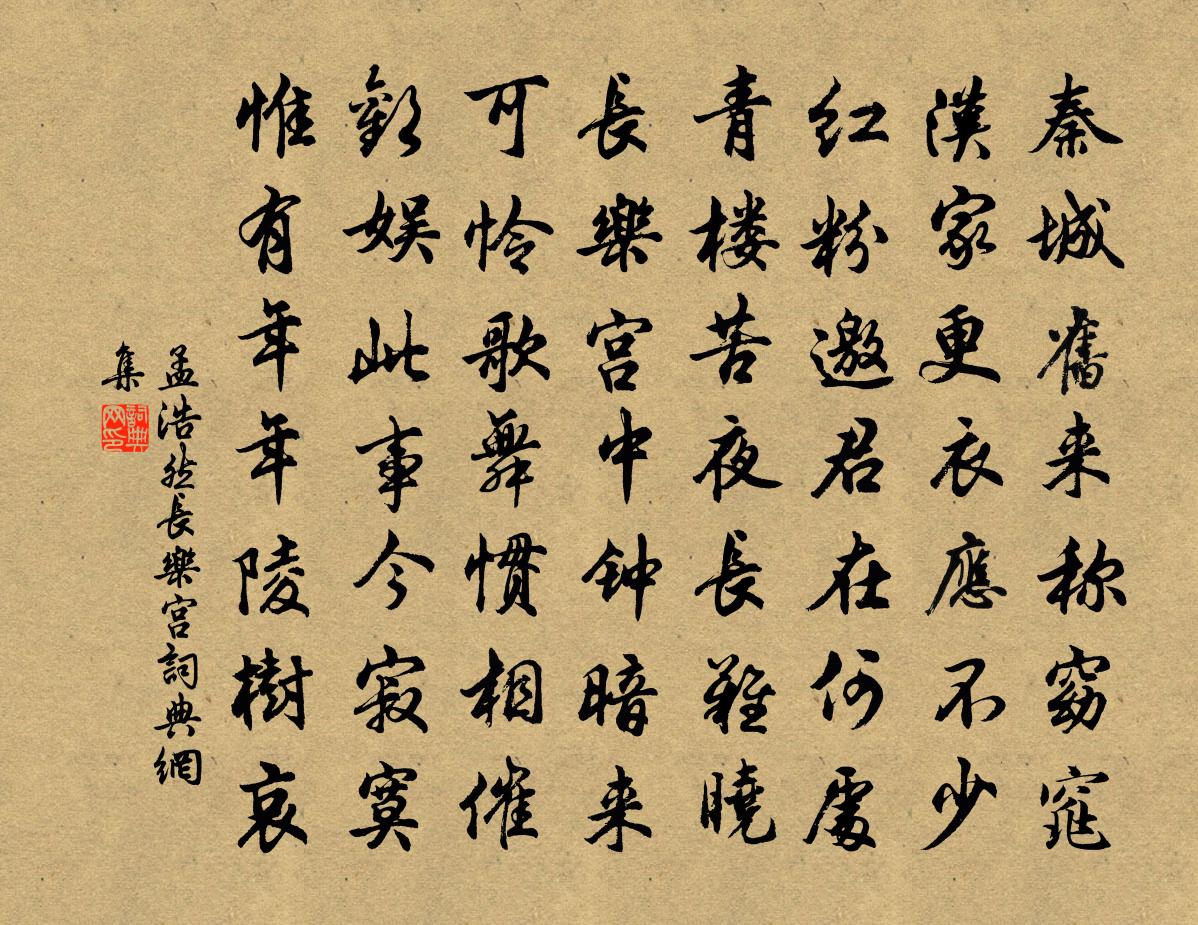 秦城舊来称窈窕
漢家更衣應不少
红粉邀君在何處
青楼苦夜長難曉
長樂宫中钟暗来
可怜歌舞慣相催
歡娱此事今寂寞
惟有年年陵樹哀
孟浩然長樂宫詞典網
集
詞典网印